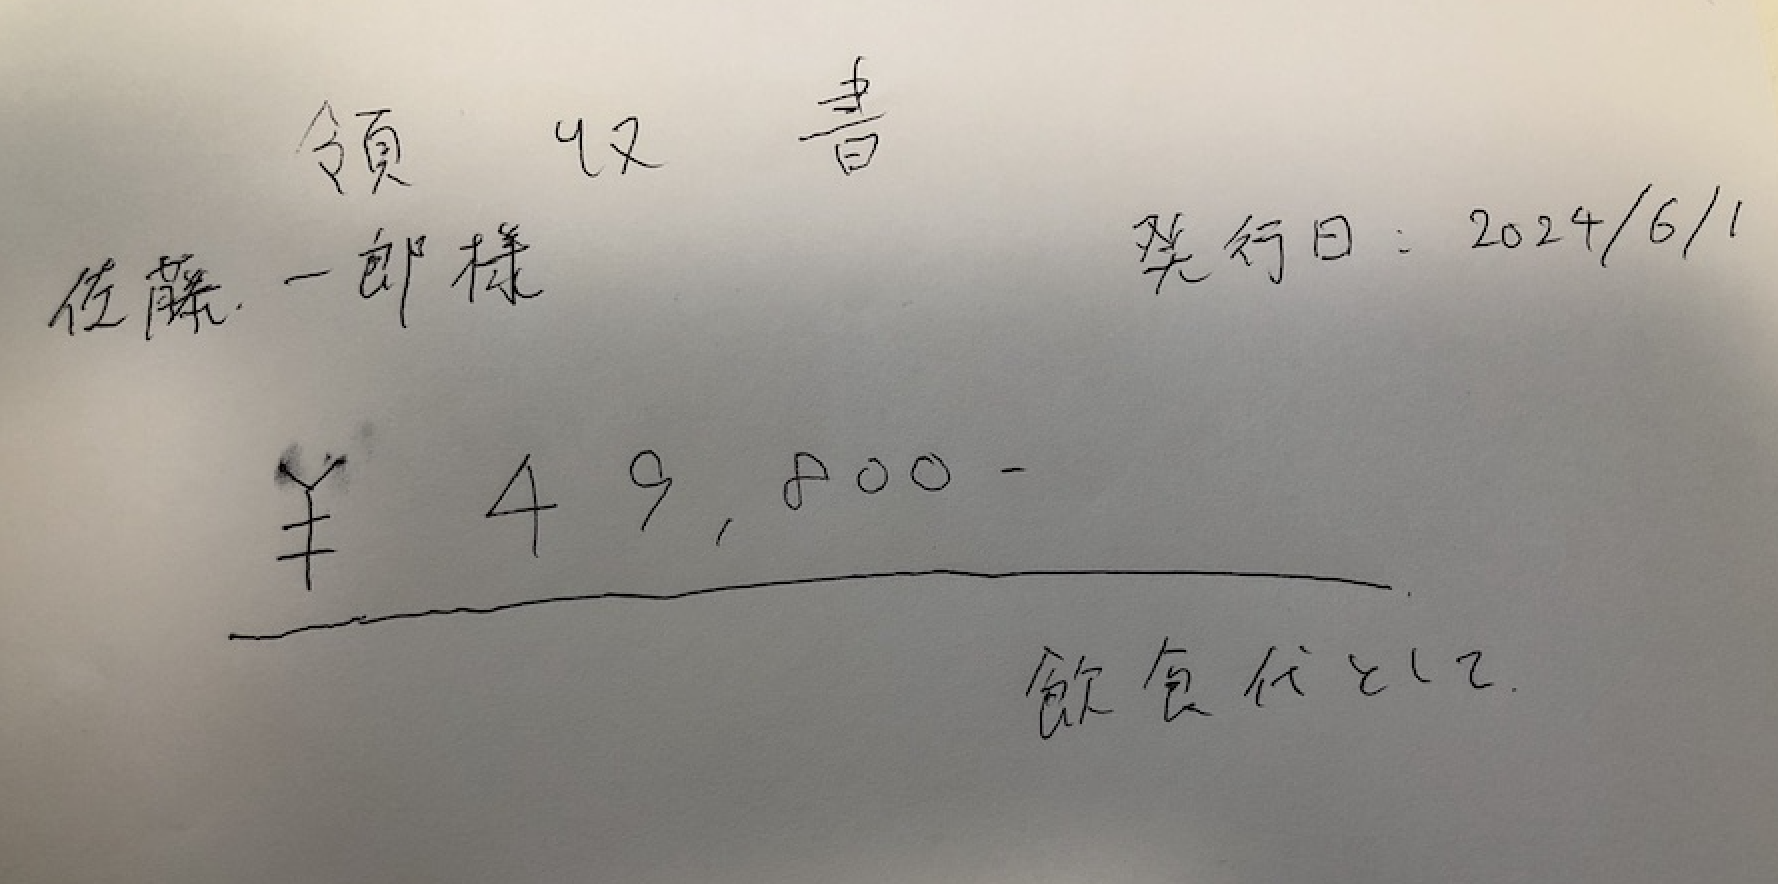 領収書
佐藤一郎様
発行日: 2024/6/1
¥ 49,800-
飲食代として.